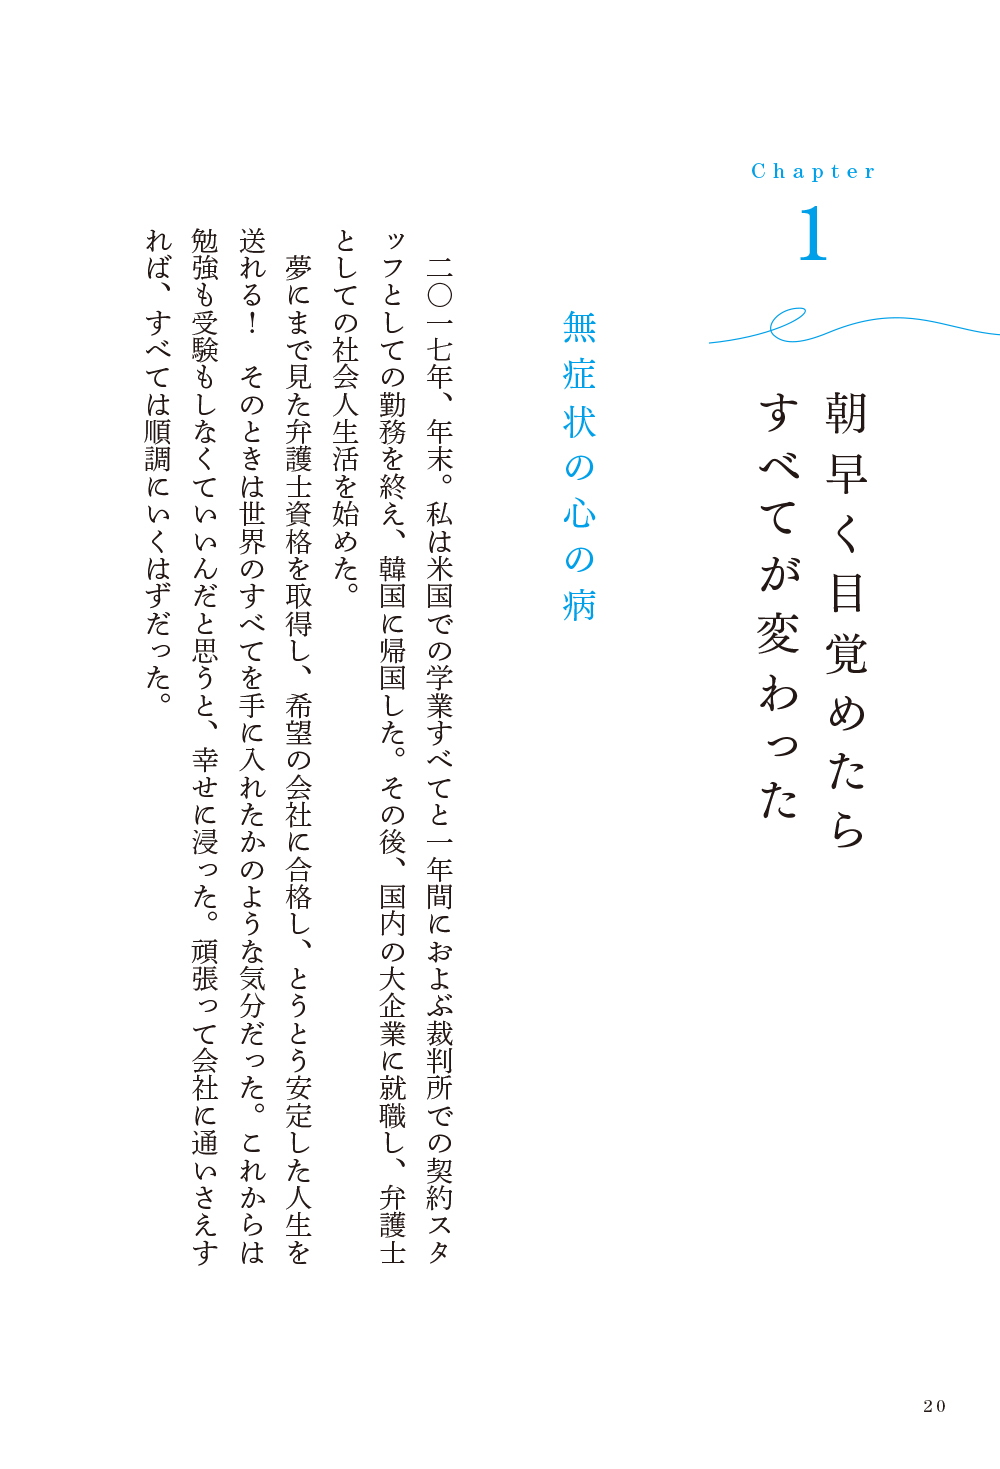 Chapter
1
朝早く目覚めたら
すべてが変わった
無症状の心の病
二〇一七年、年末。私は米国での学業すべてと一年間におよぶ裁判所での契約スタ
ッフとしての勤務を終え、韓国に帰国した。その後、国内の大企業に就職し、弁護士
としての社会人生活を始めた。
夢にまで見た弁護士資格を取得し、希望の会社に合格し、とうとう安定した人生を
送れる！　そのときは世界のすべてを手に入れたかのような気分だった。これからは
勉強も受験もしなくていいんだと思うと、幸せに浸った。頑張って会社に通いさえす
れば、すべては順調にいくはずだった。
20